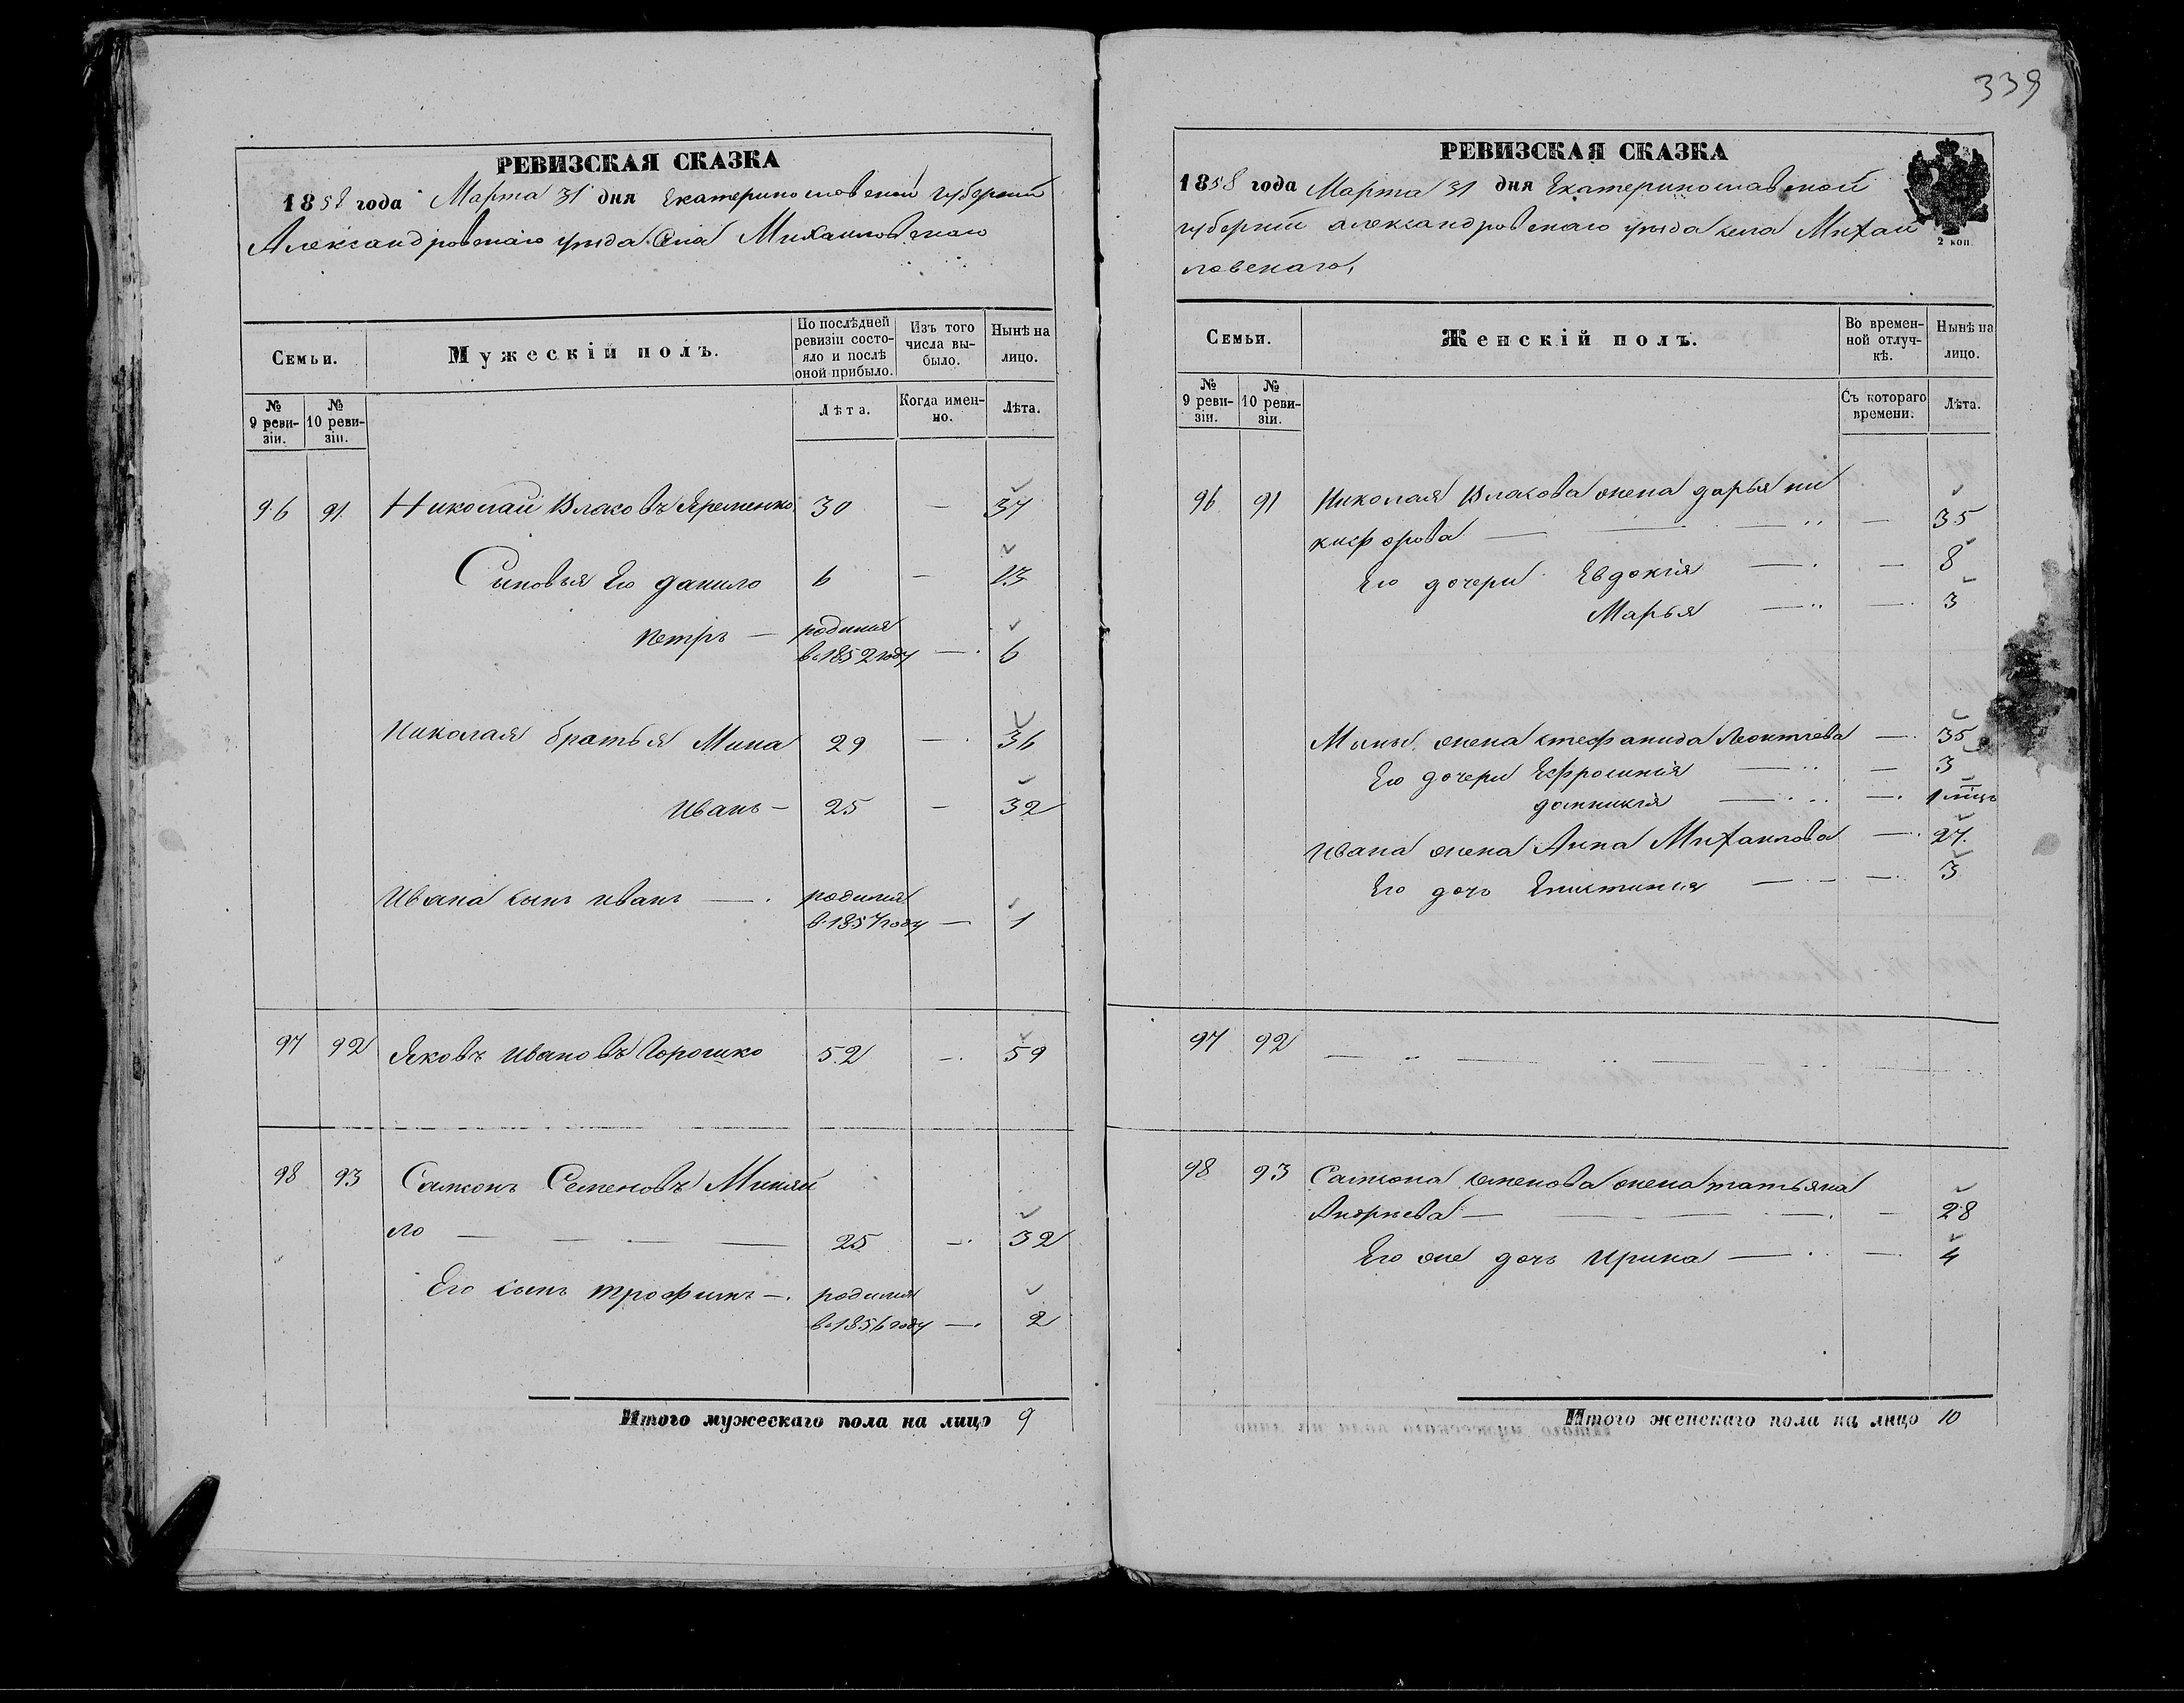 339
РЕВИЗСКАЯ СКАЗКА
1858 года Марта 31 дня Екатеринославской губерніи
Александровскаго уѣзда Села Михаиловскаго
Семьи.
Мужескій полъ.
По послѣдней ревизіи состояло и послѣ оной прибыло.
Изъ того числа выбыло.
Нынѣ на лицо.
№ 9 ревизіи.
№ 10 ревизіи.
Лѣта.
Когда именно.
Лѣта.
96 91 Николай Власовъ Яременко 30 — 37
Сыновья Его данило 6 — 13
петръ — родился
въ 1852 году — 6
Николая братья Мина 29 — 36
Иванъ — 25 — 32
Ивана сынъ иванъ — родился
в 1857 году — 1
97 92 Яковъ Ивановъ Горошко 52 — 59
98 93 Самсонъ Семеновъ
ло — 25 — 32
Его сынъ трофимъ — родился
въ 1856 году — 2
Итого мужескаго пола на лицо 9
РЕВИЗСКАЯ СКАЗКА
1858 года Марта 31 дня Екатеринославской
губерніи александровскаго уѣзда села Михаи
ловскаго,
2 коп.
Семьи.
Женскій полъ.
Во временной отлучкѣ.
Нынѣ на лицо.
№ 9 ревизіи.
№ 10 ревизіи.
Съ котораго времени.
Лѣта.
96 91 Николая Власова жена дарья ни
кифорова — 35
Его дочери Евдокія — 8
Марья — 3
Мины жена стефанида Леонтьева — 35
Его дочери Ефросинія — 3
домникія — 1 мѣць
Ивана жена Анна Михаилова — 27
Его дочь Епистимія — 3
97 92 —
98 93 Самсона семенова жена татьяна
Андреева — 28
Его же дочь Ирина — 4
Итого женскаго пола на лицо 10